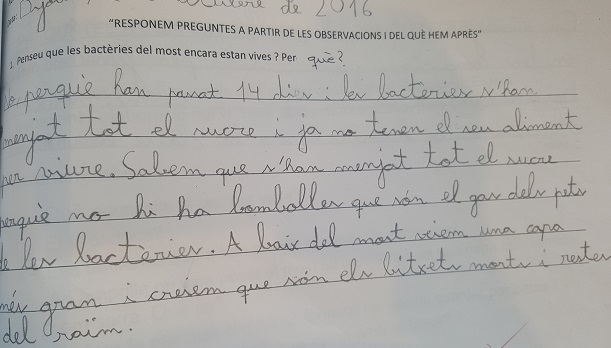 de 2016
"RESPONEM PREGUNTES A PARTIR DE LES OBSERVACIONS I DEL QUÈ HEM APRÈS"
1. Penseu que les bactèries del most encara estan vives? Per què?
perquè han passat 14 dies i les bacteries s'han
menjat tot el sucre i ja no tenen el seu aliment
per viure. Sabem que s'han menjat tot el sucre
perquè no hi ha bombolles que són el gas dels pets
de les bactèries. A baix del most veiem una capa
més gran i creiem que són els bitxets morts i restes
del raïm.